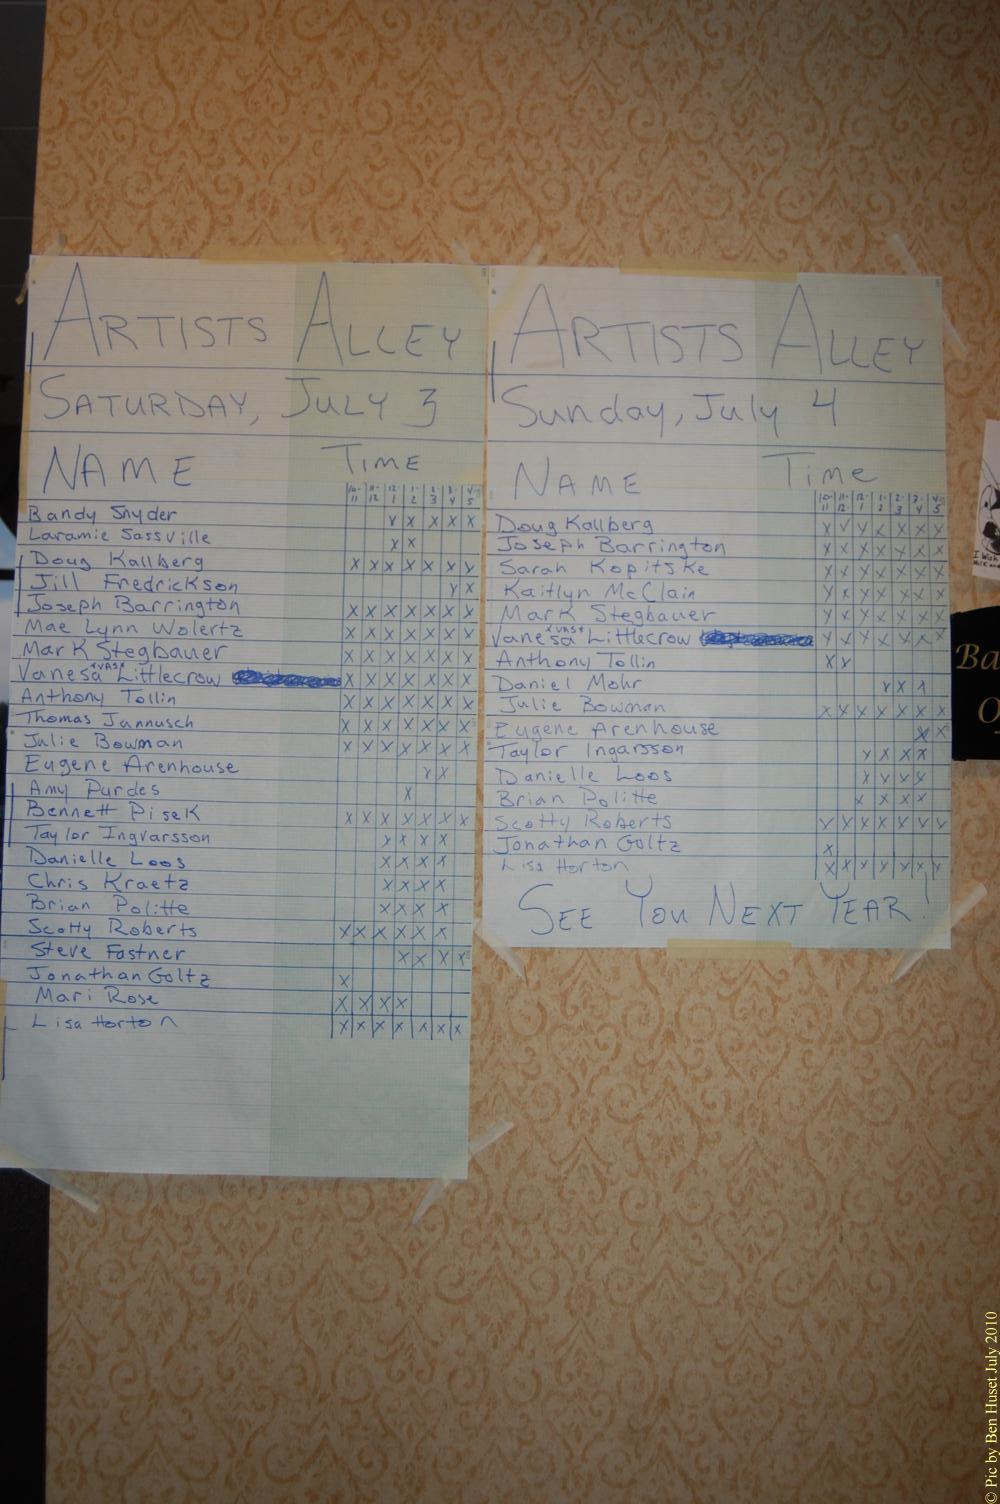 ARTISTS ALLEY
SATURDAY, JULY 3
NAME TIME
10-11 11-12 12-1 1-2 2-3 3-4 4-5
Bandy Snyder x x x x x
Laramie Sassville x x
Doug Kallberg x x x x x x x
Jill Fredrickson x x
Joseph Barrington x x x x x x x
Mae Lynn Wolertz x x x x x x x
Mark Stegbauer x x x x x x x
Vanesa "VRS" Littlecrow x x x x x x x
Anthony Tollin x x x x x x x
Thomas Jannusch x x x x x x x
Julie Bowman x x x x x x x
Eugene Arenhouse x x
Amy Purdes x
Bennett Pisek x x x x x x x
Taylor Ingvarsson x x x x
Danielle Loos x x x x
Chris Kraetz x x x x
Brian Politte x x x x
Scotty Roberts x x x x x x
Steve Fastner x x x x
Jonathan Goltz x
Mari Rose x x x x
Lisa Horton x x x x x x x
ARTISTS ALLEY
Sunday, July 4
NAME Time
10-11 11-12 12-1 1-2 2-3 3-4 4-5
Doug Kallberg x x x x x x x
Joseph Barrington x x x x x x x
Sarah Kopitske x x x x x x x
Kaitlyn McClain x x x x x x x
Mark Stegbauer x x x x x x x
Vanesa "VRS" Littlecrow x x x x x x x
Anthony Tollin x x
Daniel Mohr x x x
Julie Bowman x x x x x x x
Eugene Arenhouse x x
Taylor Ingarsson x x x x
Danielle Loos x x x x
Brian Politte x x x x
Scotty Roberts x x x x x x x
Jonathan Goltz x
Lisa Horton x x x x x x x
SEE YOU NEXT YEAR!
I Wish
Ba
O
© Pic by Ben Huset July 2010